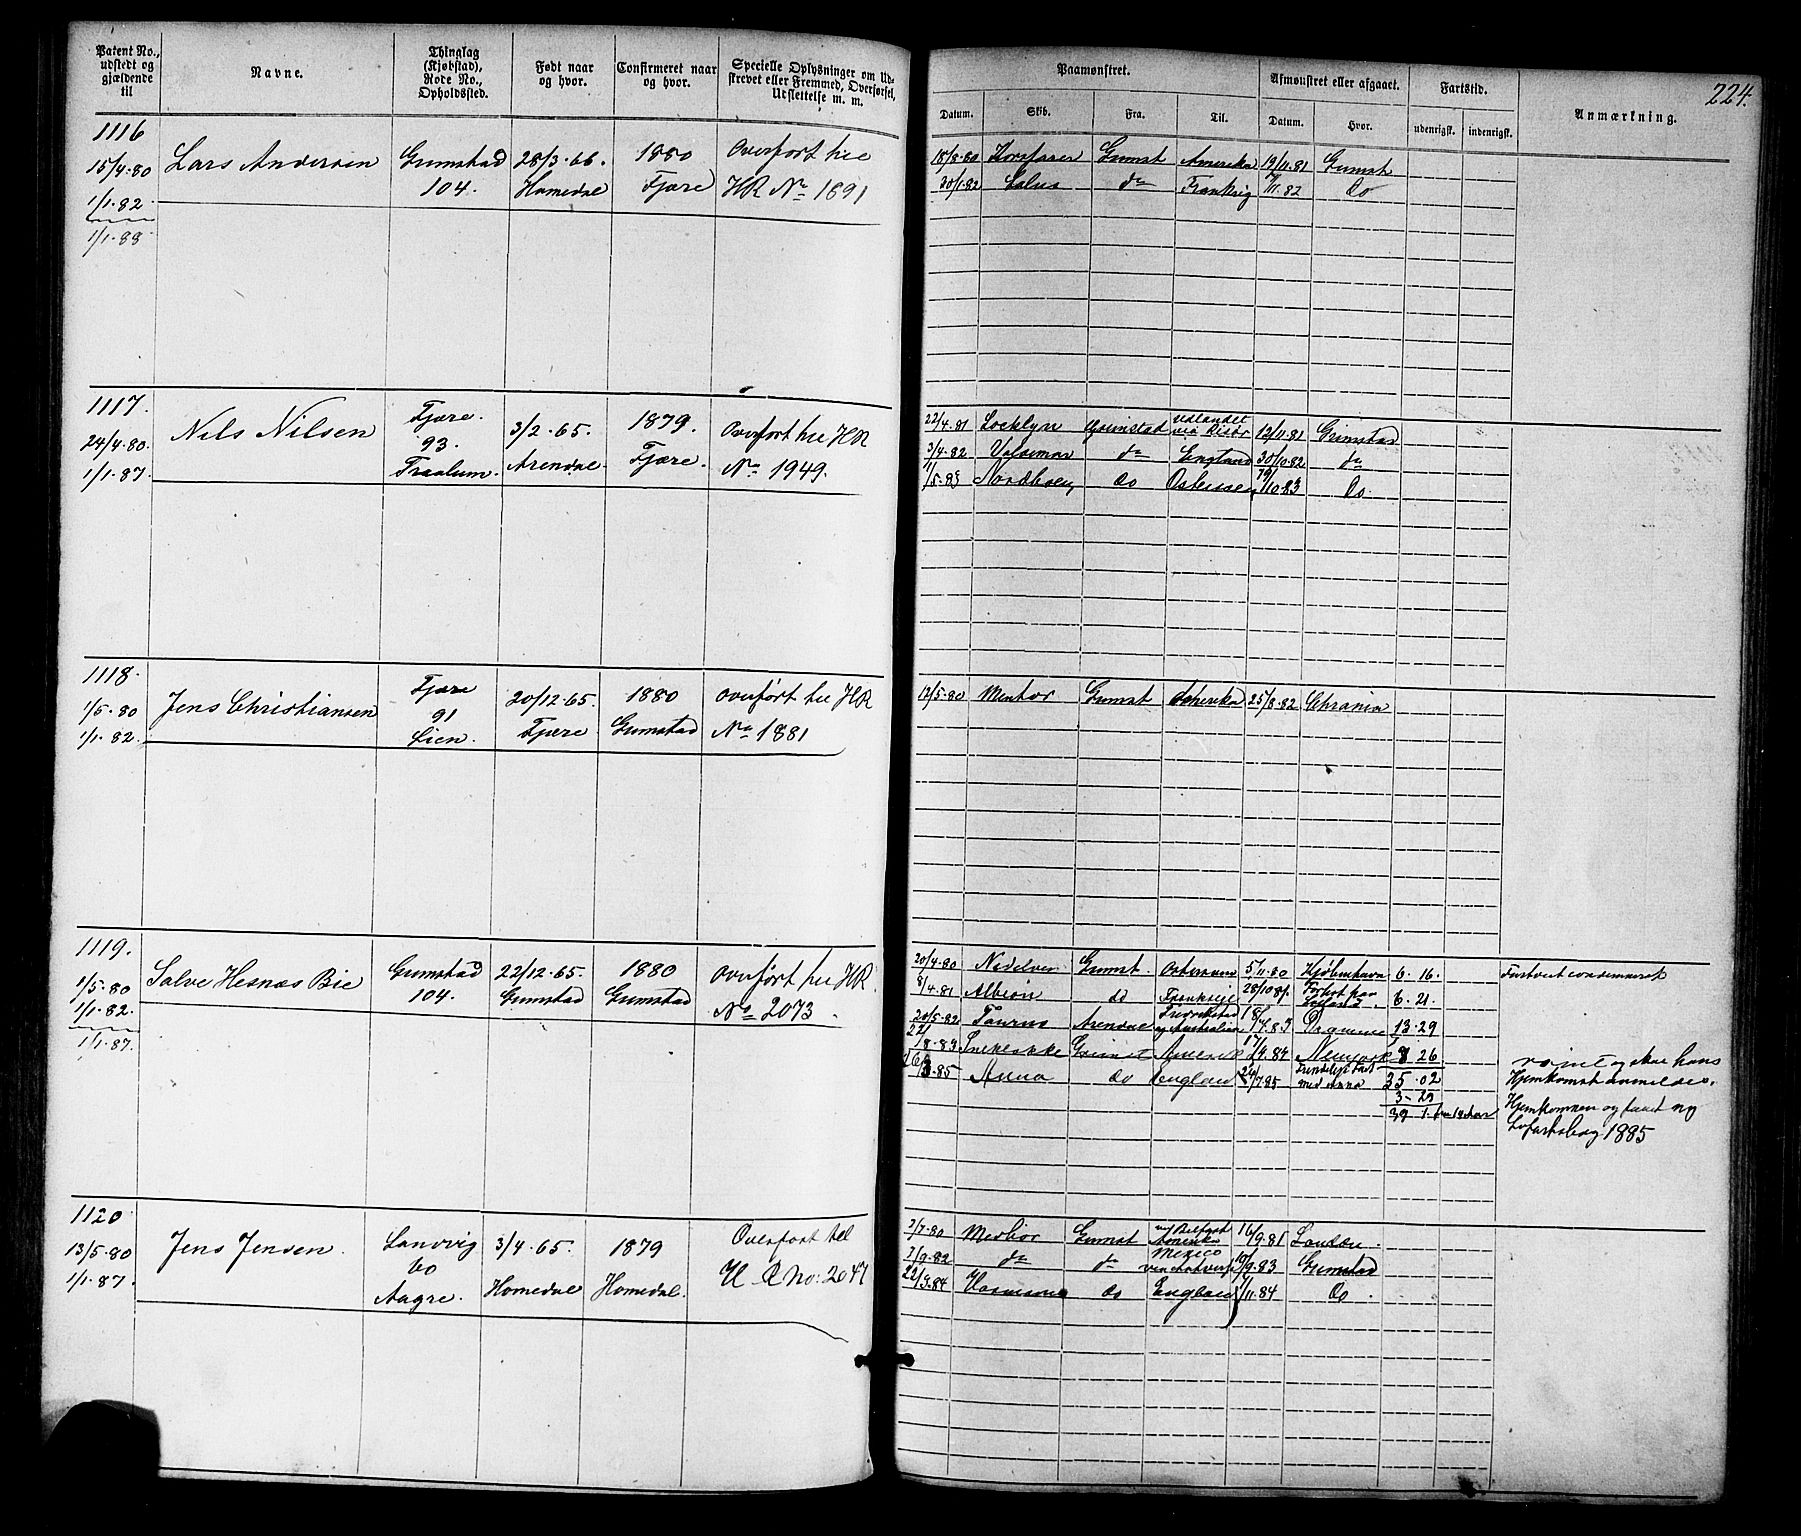 Patent No., udstedt og gjældende til
Navne.
Thinglag (Kjøbstad), Rode No., Opholdssted.
Født naar og hvor.
Confirmeret naar og hvor.
Specielle Oplysninger om Udskrevet eller Fremmed, Overførsel, Udslettelse m. m.
Paamønstret.
Datum.
Skib.
Fra.
Til.
Afmønstret eller afgaaet.
Datum.
Hvor.
Fartstid.
udenrigsk.
indenrigsk.
Anmærkning.
224.
1116
15/4.80
1/1.82
1/1.88
Lars Andersen
Grimstad
104.
28/3.66.
Homedal
1880
Fjære
Overført til
HR No 1891
18/8.80 Korsfarer Grimst Amerika 19/11.81 Grimst
30/1.82 do Frankrig 82 Do
1117.
24/4.80.
1/1.87.
Nils Nilsen
Fjære.
93.
Traalum.
3/2.65.
Arendal
1879.
Fjære.
Overført til HR
No 1949.
22/4.81 Locklyn Grimstad udlandet via Risør 12/11.81 Grimstad
3/4.82 Valdemar do England 30/10.82 do
/5.83 do Østersøen /10.83 Do.
1118.
1/5.80
1/1.82.
Jens Christiansen
Fjære
91
Lien.
20/12.65.
Fjære
1880
Grimstad
overført til HR
No 1881
12/5.80 Mentor Grimst Amerika 25/8.82 Chrania
1119.
1/5.80
1/1.82.
1/1.87.
Salve Hesnæs Bie
Grimstad
104.
22/12.65.
Grimstad
1880
Grimstad
overført til HR.
No 2073.
20/4.80 Grimst. Østersøen 5/11.80 Kjøbenhavn 6.16.
8/4.81 Albion do Frankrige 28/10.81. 6.21.
20/5.82 Taurus Arendal Fredrikstad og Australien 18/7.83 Dramme 13.29
/8.83 Grimst Amerik /4.84 Newyork 8 26
.85 Anna do England /7.85 med Anna 35.02
3-29
39 1.
Fartøiet condemneret
rømt og skal hans
Hjemkomst anmeldes.
Hjemkommen og faaet ny
Søfartsbog 1885
1120
13/5.80
1/1.87.
Jens Jensen.
Landvig
60
Aagre.
3/4.65.
Homedal
1879
Homedal.
Overført til
HR No: 2047
2/7.80 Grimst Amerika 16/9.81 London.
/9.82 do do Mexico /9.83 Grimstad
22/3.84 do England /11.84 Do.